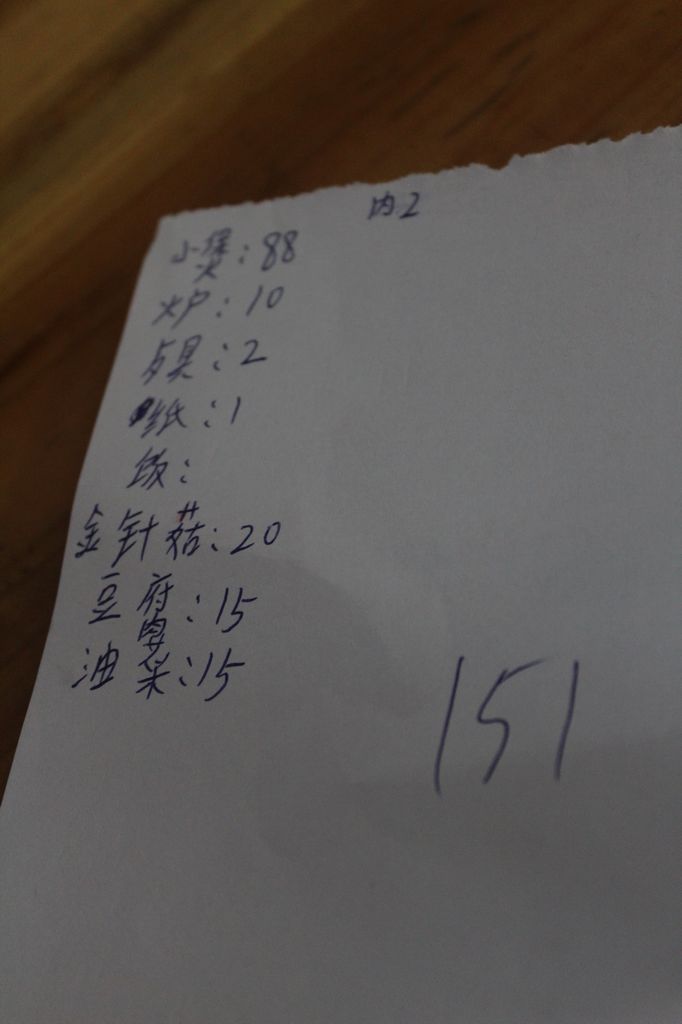 内2
小煲:88
火炉:10
占具:2
纸:1
饭:
金针菇:20
豆腐:15
油菜:15
151